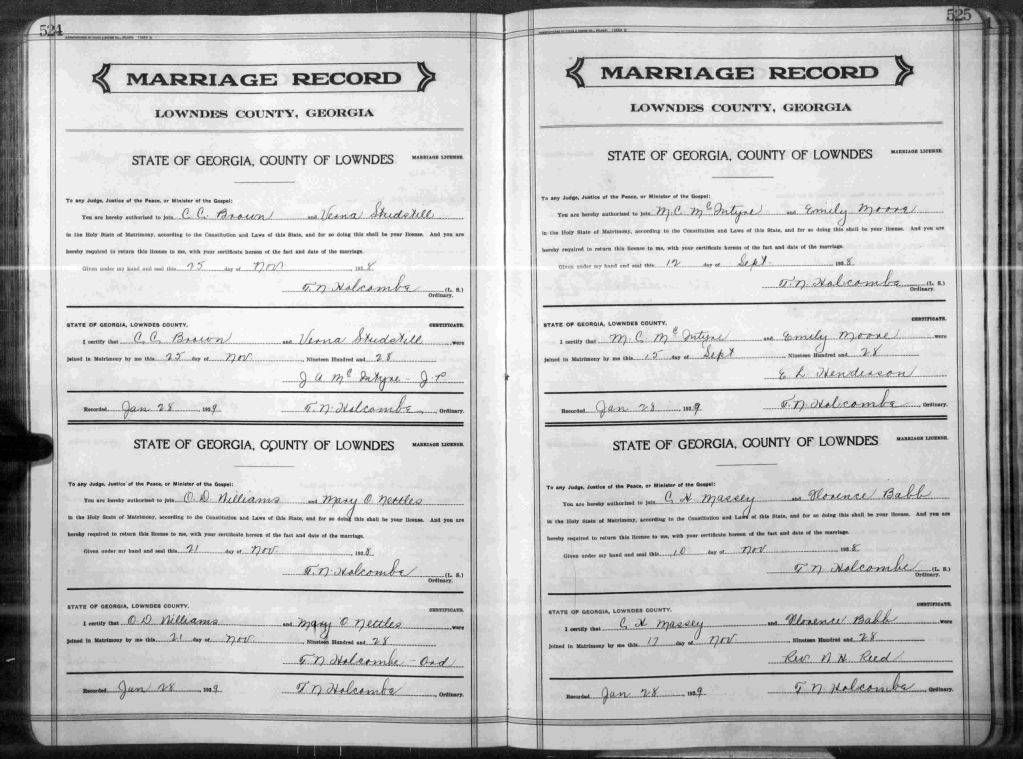 524
MARRIAGE RECORD
LOWNDES COUNTY, GEORGIA
STATE OF GEORGIA, COUNTY OF LOWNDES MARRIAGE LICENSE.
To any Judge, Justice of the Peace, or Minister of the Gospel:
You are hereby authorized to join C. C. Brown and Verna Studstill
in the Holy State of Matrimony, according to the Constitution and Laws of this State, and for so doing this shall be your license. And you are
hereby required to return this license to me, with your certificate hereon of the fact and date of the marriage.
Given under my hand and seal this 25 day of Nov 1928
T. N. Holcombe (L. S.)
Ordinary.
STATE OF GEORGIA, LOWNDES COUNTY. CERTIFICATE.
I certify that C. C. Brown and Verna Studstill were
joined in Matrimony by me this 25 day of Nov Nineteen Hundred and 28
J A McIntyre - J P
Recorded Jan 28 1929 T. N. Holcombe Ordinary.
STATE OF GEORGIA, COUNTY OF LOWNDES MARRIAGE LICENSE.
To any Judge, Justice of the Peace, or Minister of the Gospel:
You are hereby authorized to join O. D. Williams and Mary O Nettles
in the Holy State of Matrimony, according to the Constitution and Laws of this State, and for so doing this shall be your license. And you are
hereby required to return this license to me, with your certificate hereon of the fact and date of the marriage.
Given under my hand and seal this 21 day of Nov 1928
T. N. Holcombe (L. S.)
Ordinary.
STATE OF GEORGIA, LOWNDES COUNTY. CERTIFICATE.
I certify that O. D. Williams and Mary O Nettles were
joined in Matrimony by me this 21 day of Nov Nineteen Hundred and 28
T. N. Holcombe - Ord
Recorded Jan 28 1929 T. N. Holcombe Ordinary.
525
MARRIAGE RECORD
LOWNDES COUNTY, GEORGIA
STATE OF GEORGIA, COUNTY OF LOWNDES MARRIAGE LICENSE.
To any Judge, Justice of the Peace, or Minister of the Gospel:
You are hereby authorized to join M. C. McIntyre and Emily Moore
in the Holy State of Matrimony, according to the Constitution and Laws of this State, and for so doing this shall be your license. And you are
hereby required to return this license to me, with your certificate hereon of the fact and date of the marriage.
Given under my hand and seal this 12 day of Sept 1928
T. N. Holcombe (L. S.)
Ordinary.
STATE OF GEORGIA, LOWNDES COUNTY. CERTIFICATE.
I certify that M. C. McIntyre and Emily Moore were
joined in Matrimony by me this 15 day of Sept Nineteen Hundred and 28
E L Henderson
Recorded Jan 28 1929 T. N. Holcombe Ordinary.
STATE OF GEORGIA, COUNTY OF LOWNDES MARRIAGE LICENSE.
To any Judge, Justice of the Peace, or Minister of the Gospel:
You are hereby authorized to join C H Massey and Florence Babb
in the Holy State of Matrimony, according to the Constitution and Laws of this State, and for so doing this shall be your license. And you are
hereby required to return this license to me, with your certificate hereon of the fact and date of the marriage.
Given under my hand and seal this 10 day of Nov 1928
T. N. Holcombe (L. S.)
Ordinary.
STATE OF GEORGIA, LOWNDES COUNTY. CERTIFICATE.
I certify that C H Massey and Florence Babb were
joined in Matrimony by me this 17 day of Nov Nineteen Hundred and 28
Rev. N. H. Reed
Recorded Jan 28 1929 T. N. Holcombe Ordinary.